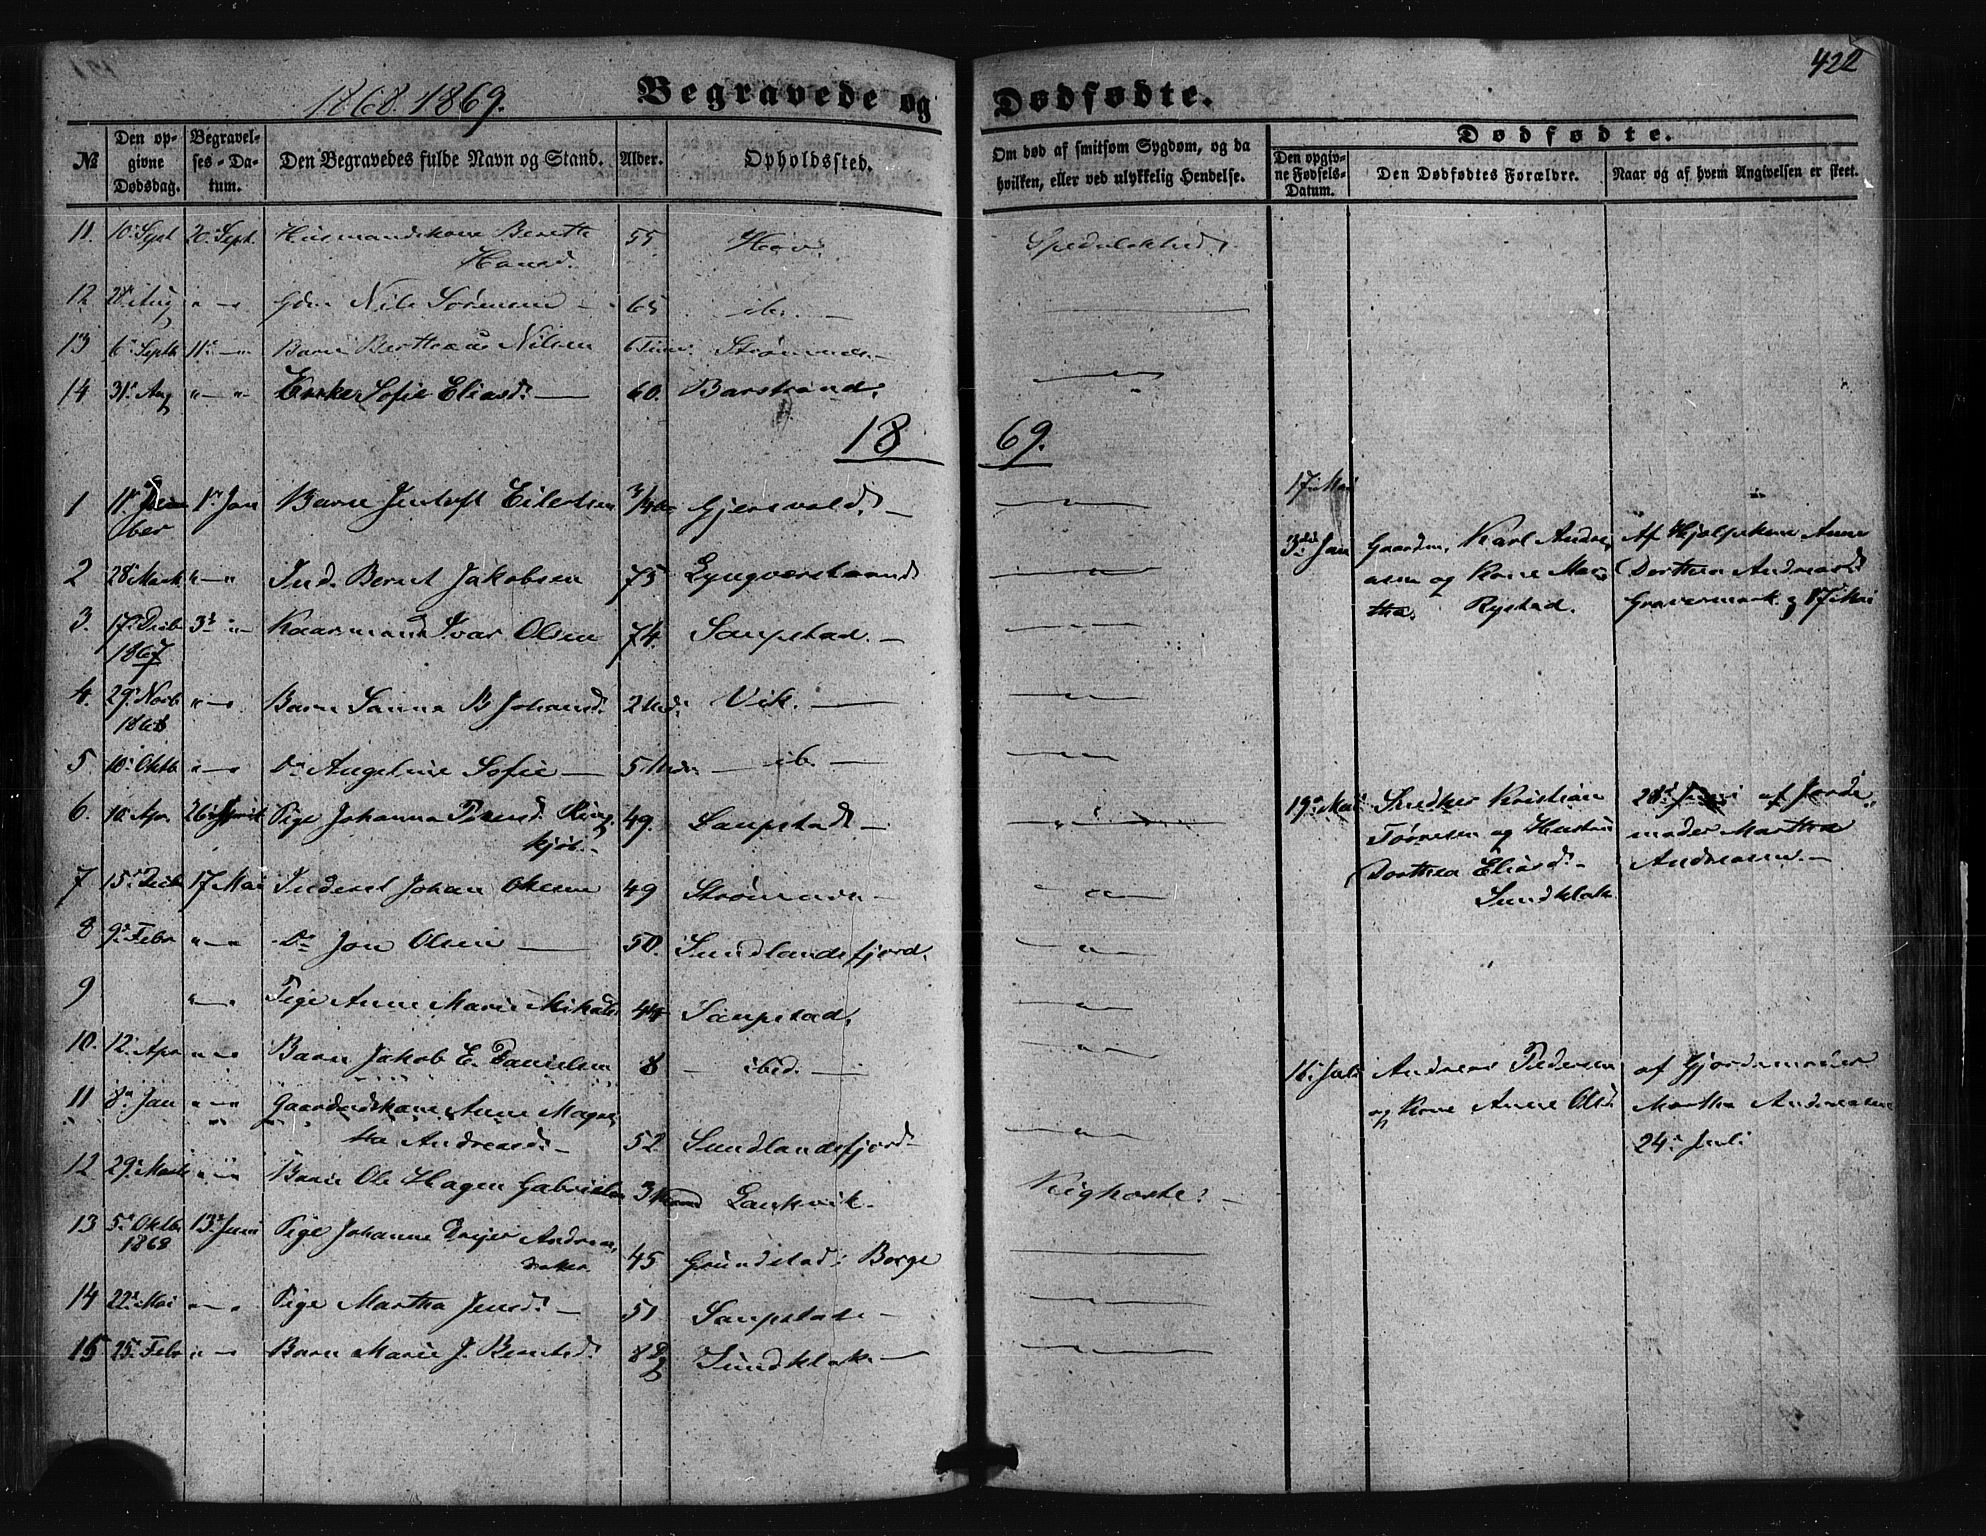 422
1868. 1869. Begravede og Dødfødte.
№
Den opgivne Dødsdag.
Begravelses-Datum.
Den Begravedes fulde Navn og Stand.
Alder.
Opholdssted.
Om død af smitsom Sygdom, og da hvilken, eller ved ulykkelig Hendelse.
Dødfødte.
Den opgivne Fødsels-Datum.
Den Dødfødtes Forældre.
Naar og af hvem Angivelsen er skeet.
11. 10. Sept 20. Sept. Husmandskone Berethe 55 Hov. Spedalskhed.
Hansd.
12 28. Aug " — " Gdm Nils Sørensen — 65 ib. —
13 6. Septb 11. — " Barn Nilsen Strømnes. —
14 31. Aug " — " Enke Sofie Eliasd. — 60. Barstrand.
18 69.
17. Mai
1 11. 1. Jan Barn Jentoft Eilertsen 3/4 Gjersvold. —
ber
3. Jan Gaardm. Karl Andre- Af Hjelpekone Anne
2 28. Mart " — " Ind. Bernt Jakobsen 75 Lyngværstrand
asen og Kone Mar- Dorthea Andreasd.
tha. Rystad. Gravermark. 17. Mai
3. 17. Decb 3. " — Kaarmand Ivar Olsen 74. Laupstad. —
1867
4. 29. Novb " — " Barn Sanna B Johansd. 2 Vik. —
1868
5 10. Oktb " — " Do Angeline Sofie — 5 — ib. —
6. 10. Apr. 26. April Pige Johanna Ring- 49. Laupstad —
kjøb. —
19. Mai Snedker Kristian 28. af Jorde-
Tørresen og Hustru moder Martha
Dorthea Eliasd. — Andreasen. —
Sundklak
7 15. Decb 17 Mai Inderst Johan Olsen 49 Strømnes. —
8 9. Febr " — " Do Jon Olsen — 50. Sundlandsfjord.
9 " — " Pige Anne Marie Mikals 44 Laupstad.
10. 12. Apr " — " Barn Jakob E. Danielsen 8 — ibid. —
16. Juli Andreas Pedersen af Gjordemoder
og Kone Anne Olsd Martha Andreasen
24. Juli
11 8. Jan " — " Gaardmandskone Anne Magre-
tha Andreasd. — 52 Sundlandsfjord —
12 29. Mart " — " Barn Ole Hagen Gabrielsen 3 Laukvik. Kighoste. —
13 5. Oktbr 13. Juni Pige Johanne Dreyer Andreas-
1868 datter. 45 Grundstad i Borge
14 22. Mai " — " Pige Martha Jensd. — 51 Laupstad. —
15 25. Febr " — " Barn Marie J. Berntsd. 8 D Sundklak. —